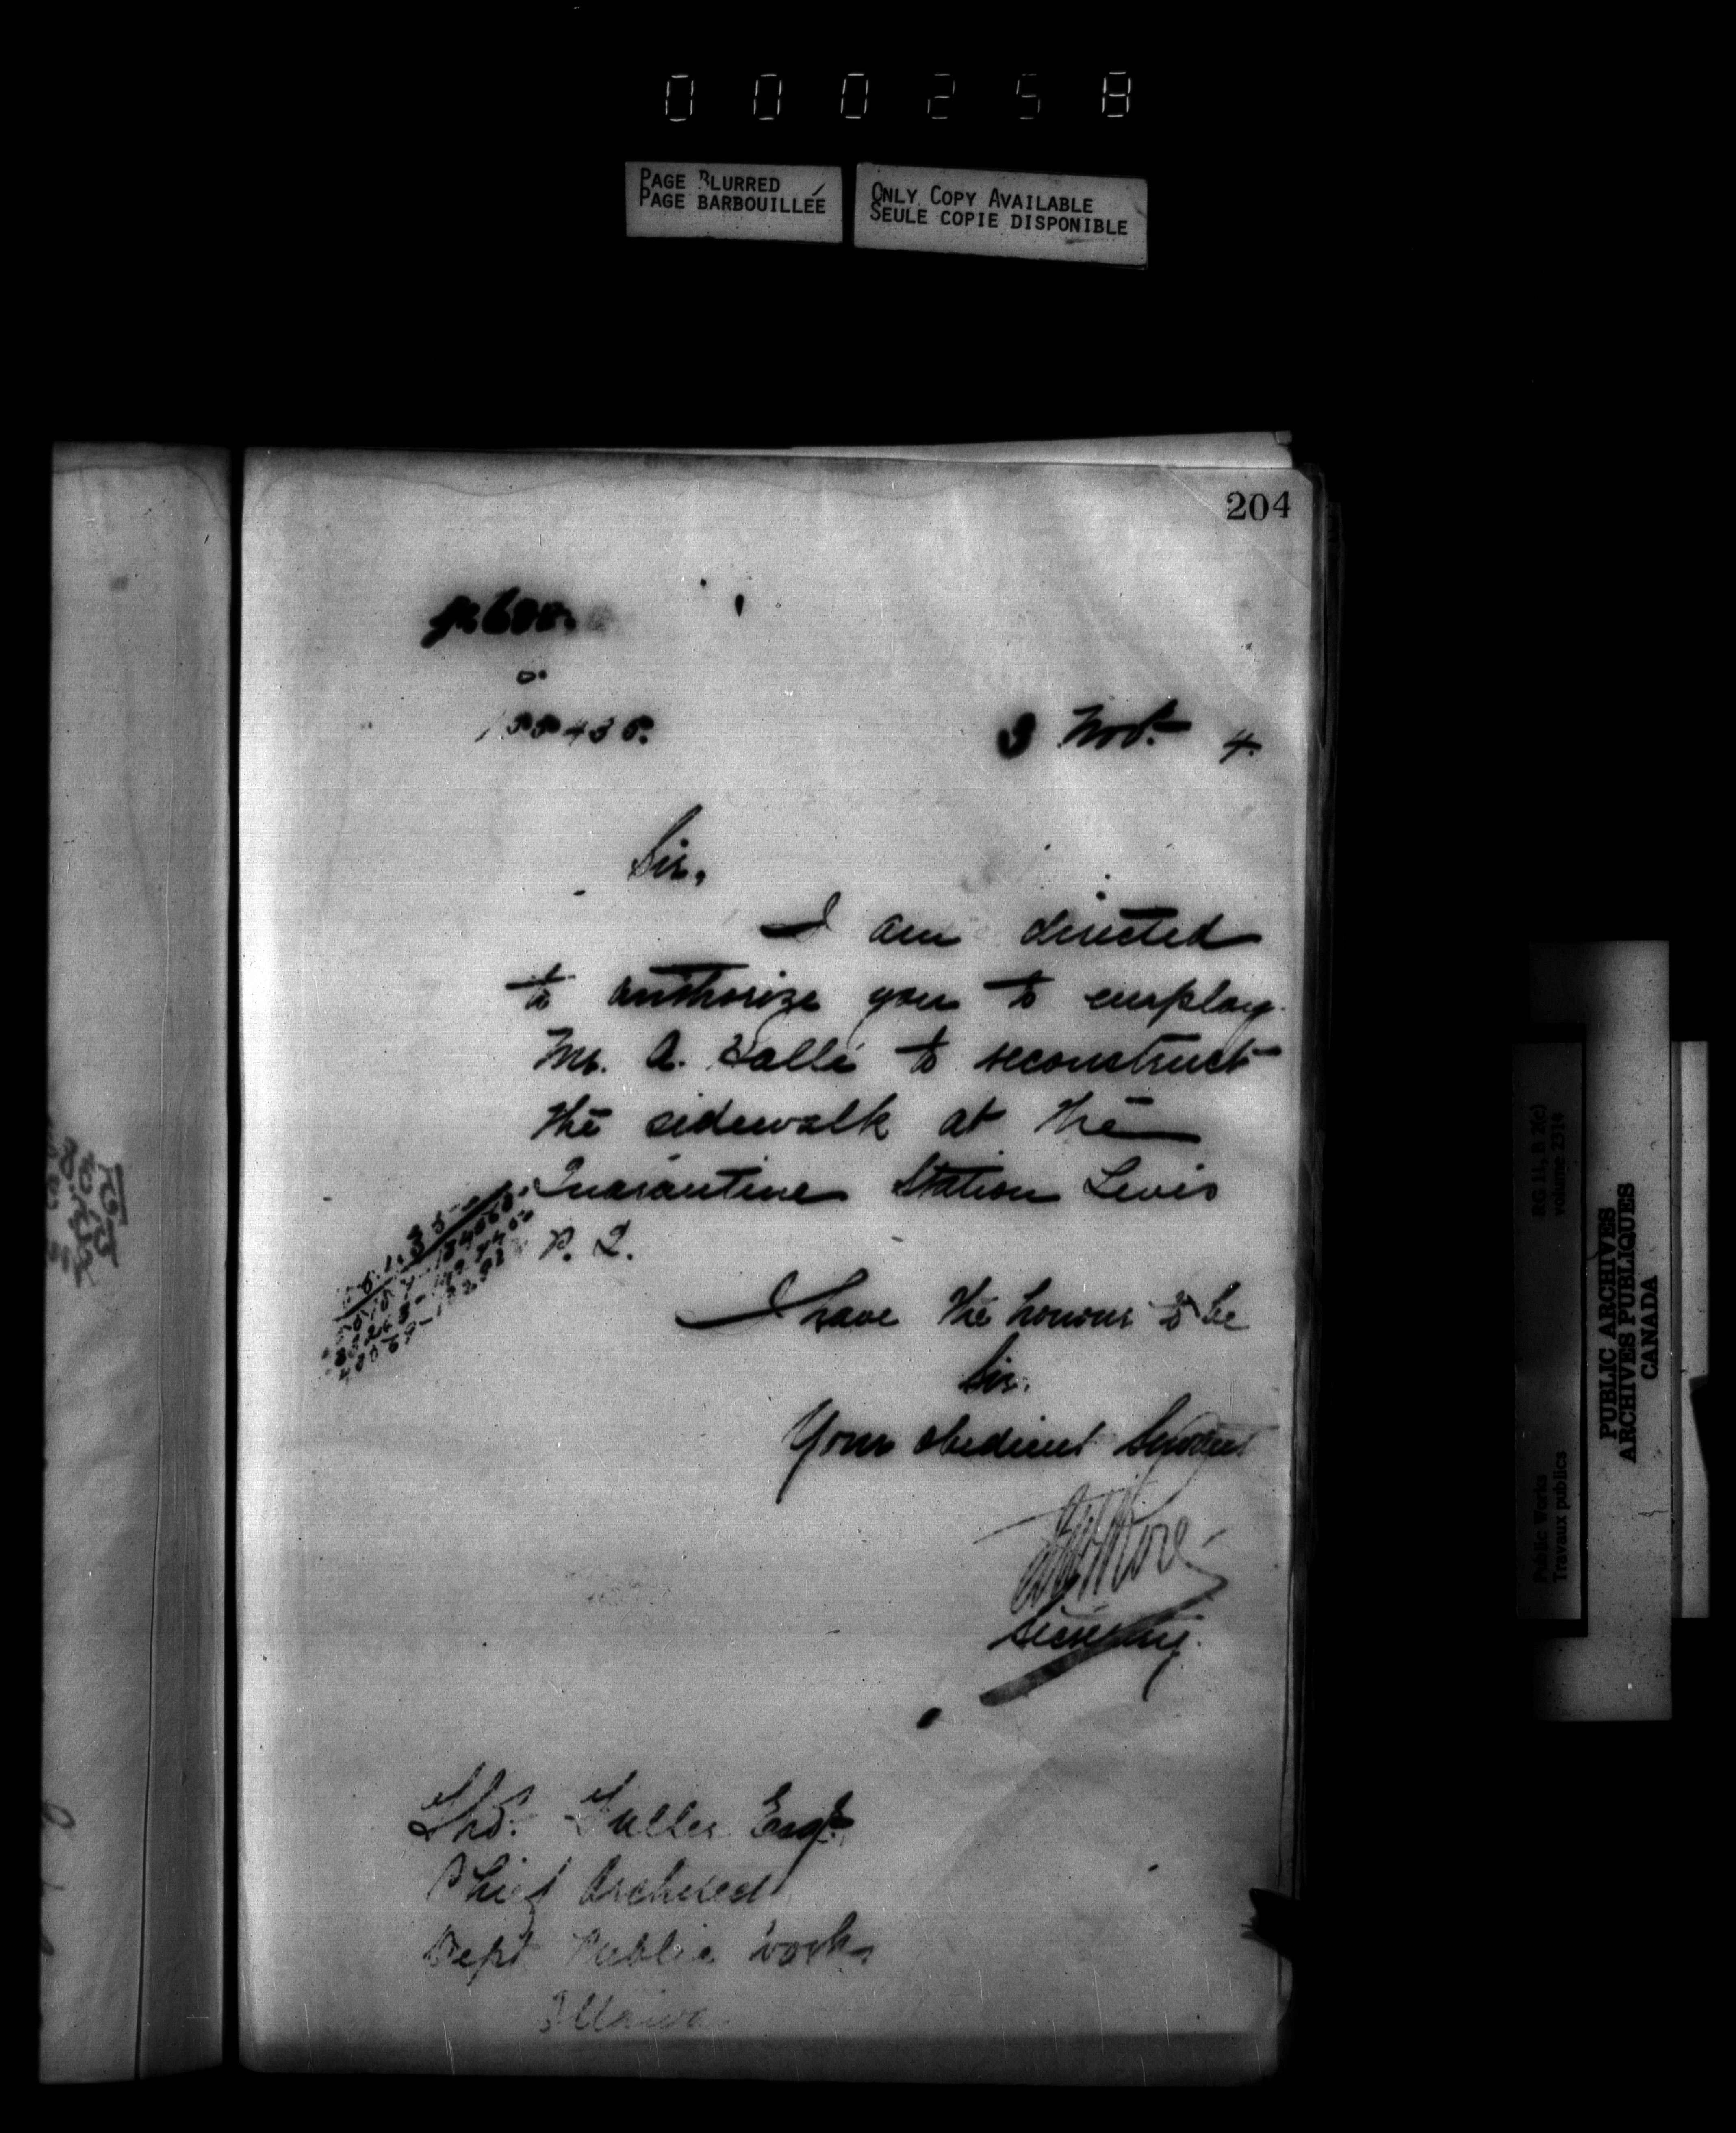 000258
PAGE BLURRED
PAGE BARBOUILLÉE
ONLY COPY AVAILABLE
SEULE COPIE DISPONIBLE
204
3 Nov. 4.
Sir,
I am directed
to authorize you to employ
Mr. A. Vallé to reconstruct
the sidewalk at the
Quarantine Station Levis
P. Q.
I have the honour to be
Sir.
Your obedient Servant
Secretary.
Thos. Fuller Esqr.
Chief Architect
Dept Public Works
Ottawa
RG 11, B 2(c)
Public Works
Travaux publics
PUBLIC ARCHIVES
ARCHIVES PUBLIQUES
CANADA